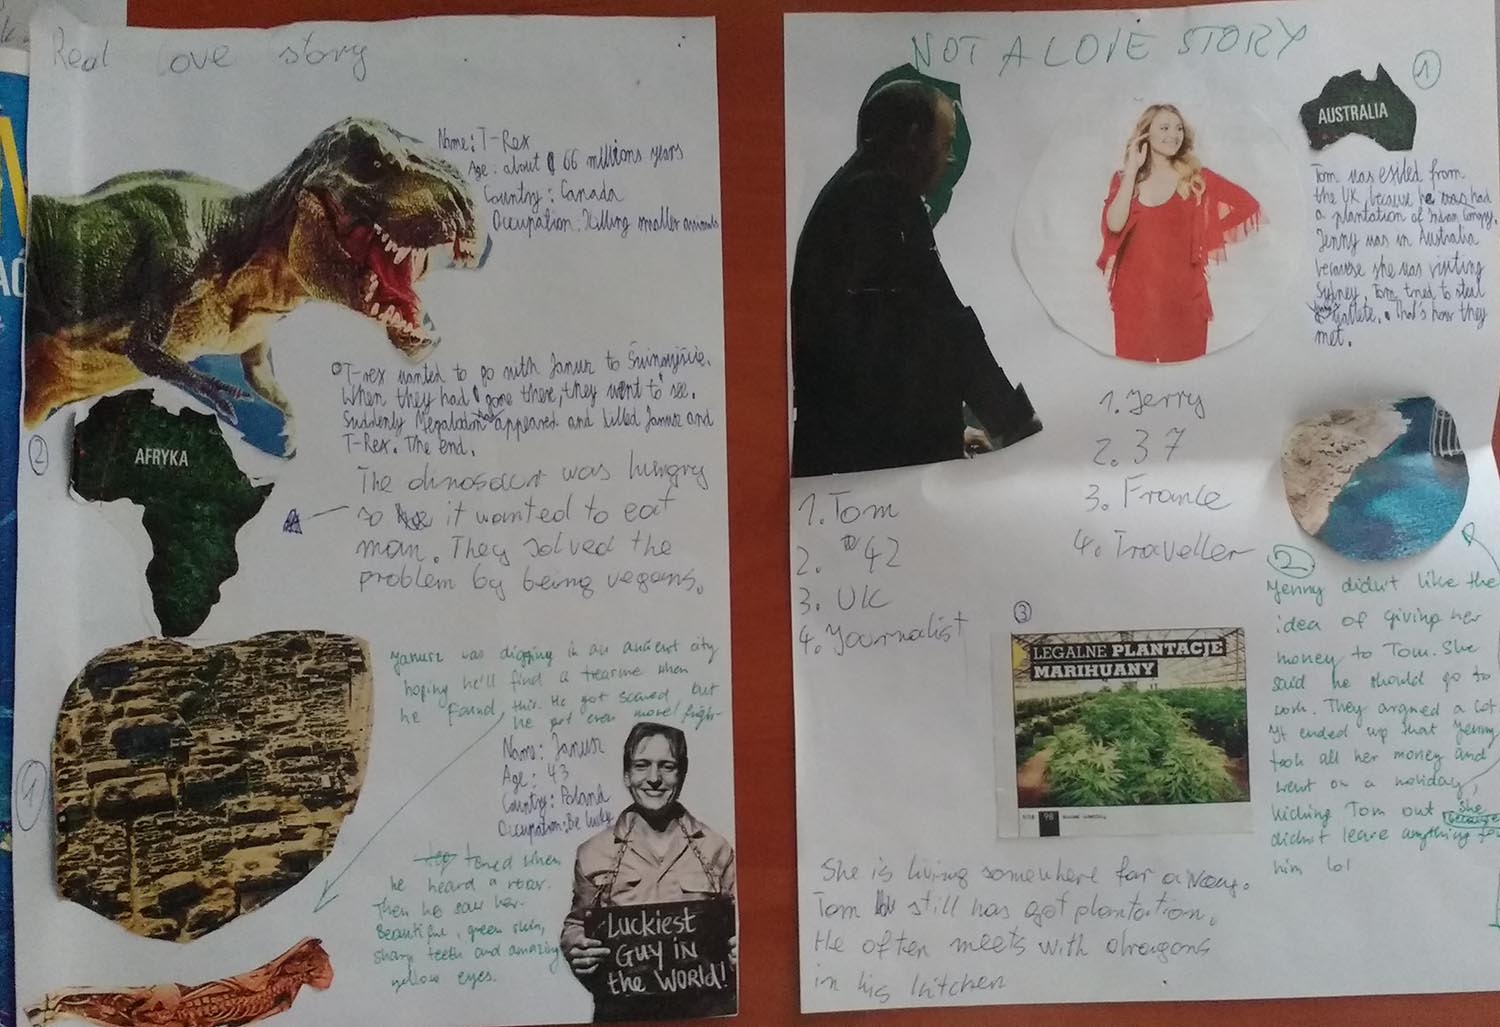 Real love story
Name: T-Rex
Age: about 66 millions years
Country: Canada
Occupation: Killing smaller animals
T-rex wanted to go with Janusz to Świnoujście.
When they had gone there, they went to see.
Suddenly Megalodon appeared and killed Janusz and
T-Rex. The end.
2
AFRYKA
The dinosaur was hungry
so it wanted to eat
man. They solved the
problem by being vegans.
Janusz was digging in an ancient city
hoping he'll find a treasure when
he found this. He got scared but
he got even more fright-
1
Name: Janusz
Age: 43
Country: Poland
Occupation: Be lucky
ened when
he heard a roar.
Then he saw her.
Beautiful, green skin,
sharp teeth and amazing
yellow eyes.
Luckiest
Guy in
the World!
NOT A LOVE STORY
1
AUSTRALIA
Tom was exiled from
the UK, because he had
a plantation of
Jenny was in Australia
because she was visiting
Sydney. Tom tried to steal
That's how they
met.
1. Jerry
2. 37
3. France
4. Traveller
1. Tom
2. 42
3. UK
4. Journalist
3
LEGALNE PLANTACJE
MARIHUANY
98
2
Jenny didn't like the
idea of giving her
money to Tom. She
said he should go to
work. They argued a lot
It ended up that Jenny
took all her money and
went on a holiday,
kicking Tom out
because
she
didn't leave anything for
him lol
She is living somewhere far away.
Tom still has got plantation.
He often meets with dragons
in his kitchen